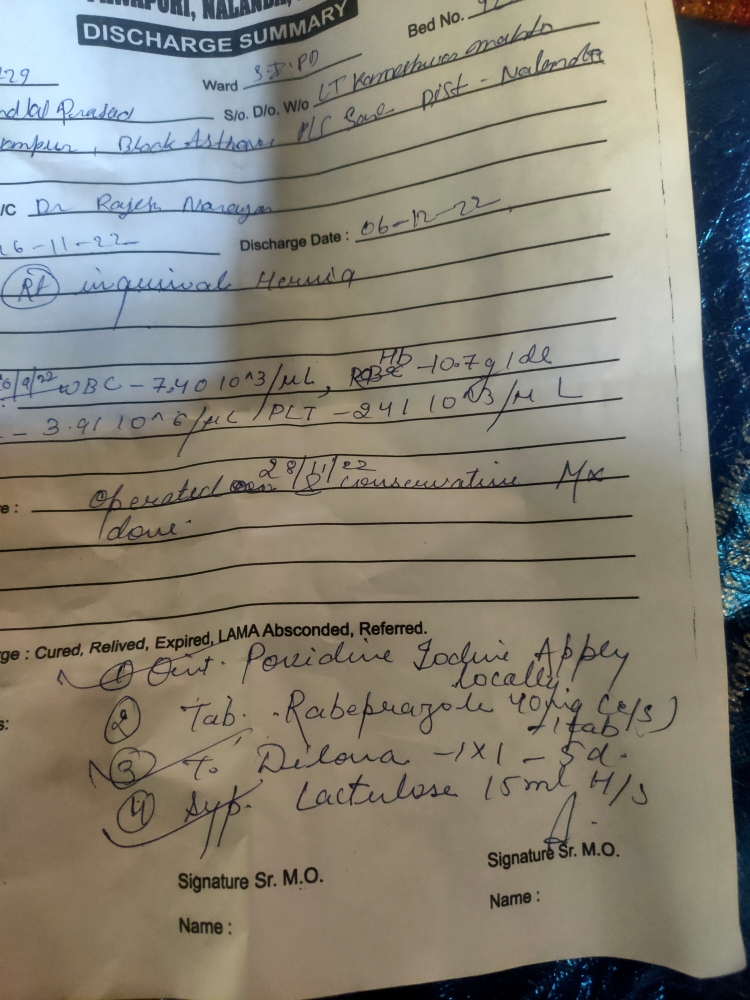 PAWAPURI, NALANDA,
DISCHARGE SUMMARY
Bed No.
229
Ward S.I.PD
Prasad S/o. D/o. W/o LT Kameshwar mahto
Block Asthawa P/S Sare Dist - Nalanda
/C Dr Rajesh Narayan
26-11-22 Discharge Date : 06-12-22
Rt inguinal Hernia
WBC - 7.40 10^3/μL, Hb - 10.7 g/dl
- 3.91 10^6/μL PLT - 241 10^3/μL
e : operated on 28/11/22 & conservative Mx
done.
ge : Cured, Relived, Expired, LAMA Absconded, Referred.
1 Oint. Povidine Iodine Apply
locally
s:
2 Tab. Rabeprazole 40mg (e/s)
- 1 tab
3 T. Dilona - 1X1 - 5d.
4 Syp. Lactulose 15ml H/s
Signature Sr. M.O. Signature Sr. M.O.
Name : Name :